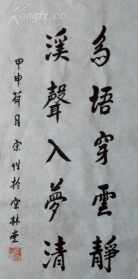 鳥語穿雲靜
溪聲入夢清
甲申荷月宗性於空林堂